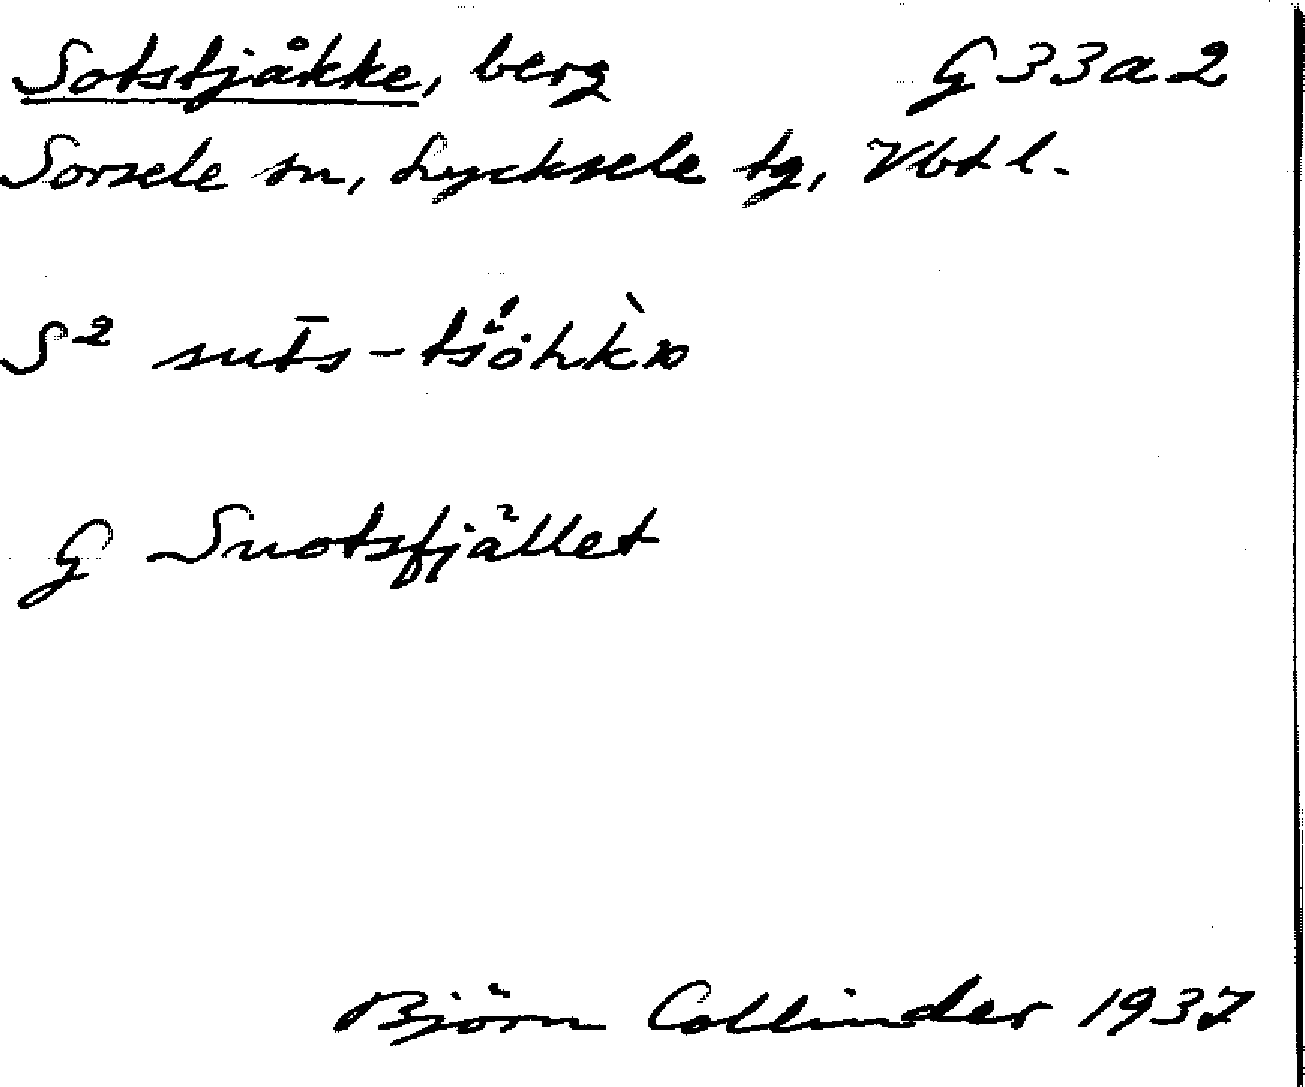 Sotstjåkke, berg G 33a2
Sorsele sn, Lycksele tg, Vbtl.
S²
G Suotsfjället
Björn Collinder 1937